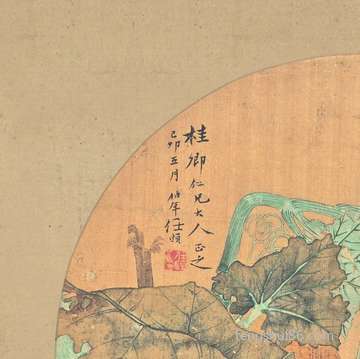 桂卿仁兄大人正之
己卯五月伯年任頤